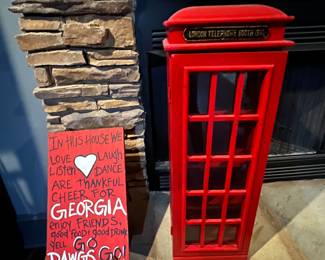 LONDON TELEPHONE BOOTH
IN THIS HOUSE WE
LOVE LAUGH
LISTEN DANCE
ARE THANKFUL
CHEER FOR
GEORGIA
enjoy FRIENDS,
good food & good DRINK
YELL GO
DAWGS GO!